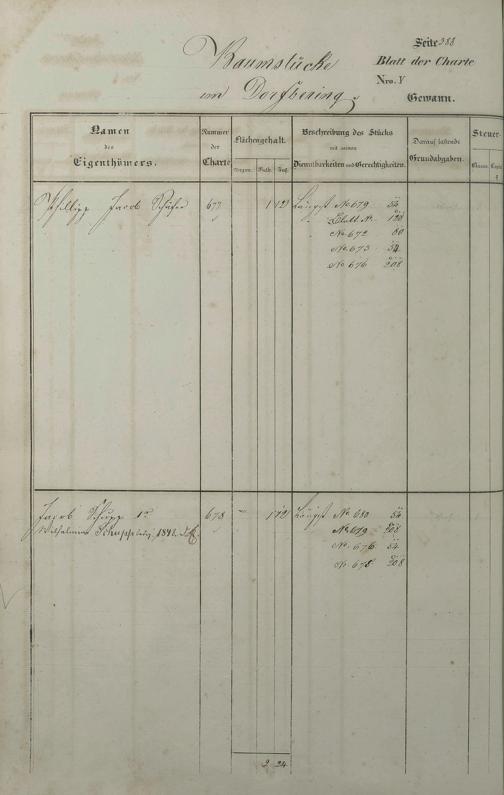 Seite 388
Baumstücke
Blatt der Charte
im Dorfbering.
Nro. V
Gewann.
Namen
des
Eigenthümers.
Nummer
der
Charte
Flächengehalt.
Morgen. Ruth. Fuß.
Beschreibung des Stücks
mit seinen
Dienstbarkeiten und Gerechtigkeiten.
Darauf haftende
Grundabgaben.
Steuer-
Philipp Jacob Schäfer 677 1 12 Längst No 679 54
Blatt Nr. 120
No 672 80
No 673 54
No 676 208
Jacob Schupp 1r 678 1 12 Längst No 680 54
Wilhelmine Schupp 1842
No 679 208
No 676 54
No 675 208
2 24